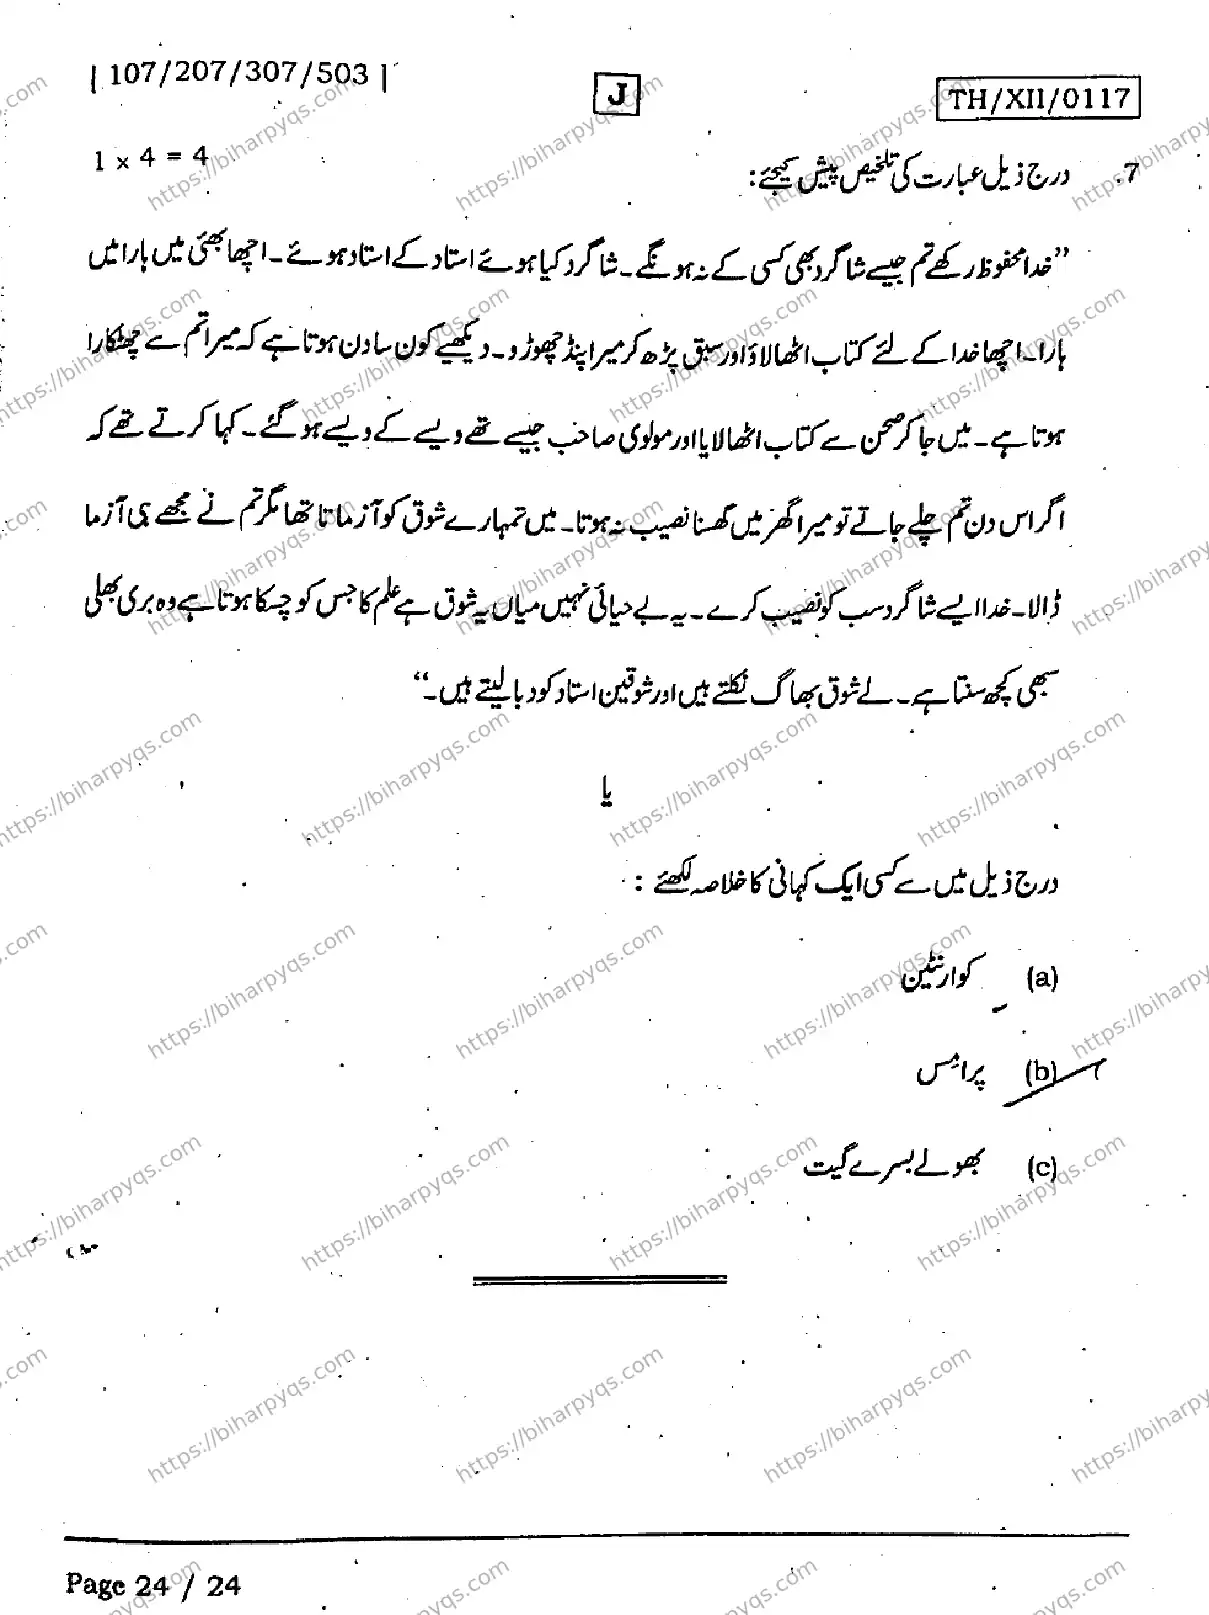 | 107/207/307/503 |
J
TH/XII/0117
1 x 4 = 4
7. درج ذیل عبارت کی تلخیص پیش کیجئے :
”خدا محفوظ رکھے تم جیسے شاگرد بھی کسی کے نہ ہونگے۔ شاگرد کیا ہوئے استاد کے استاد ہوئے۔ اچھا بھئی میں ہارا میں
ہارا۔ اچھا خدا کے لئے کتاب اٹھا لاؤ اور سبق پڑھ کر میرا پنڈ چھوڑو۔ دیکھیے کون سا دن ہوتا ہے کہ میرا تم سے چھٹکارا
ہوتا ہے۔ میں جا کر صحن سے کتاب اٹھا لایا اور مولوی صاحب جیسے تھے ویسے کے ویسے ہو گئے۔ کہا کرتے تھے کہ
اگر اس دن تم چلے جاتے تو میرا گھر میں گھسنا نصیب نہ ہوتا۔ میں تمہارے شوق کو آزماتا تھا مگر تم نے مجھے ہی آزما
ڈالا۔ خدا ایسے شاگرد سب کو نصیب کرے۔ یہ بے حیائی نہیں میاں یہ شوق ہے علم کا جس کو چسکا ہوتا ہے وہ بری بھلی
سبھی کچھ سنتا ہے۔ بے شوق بھاگ نکلتے ہیں اور شوقین استاد کو دبا لیتے ہیں۔“
یا
درج ذیل میں سے کسی ایک کہانی کا خلاصہ لکھئے :
(a) کوارنٹین
(b) پرامِس
(c) بھولے بسرے گیت
Page 24 / 24
https://biharpyqs.com